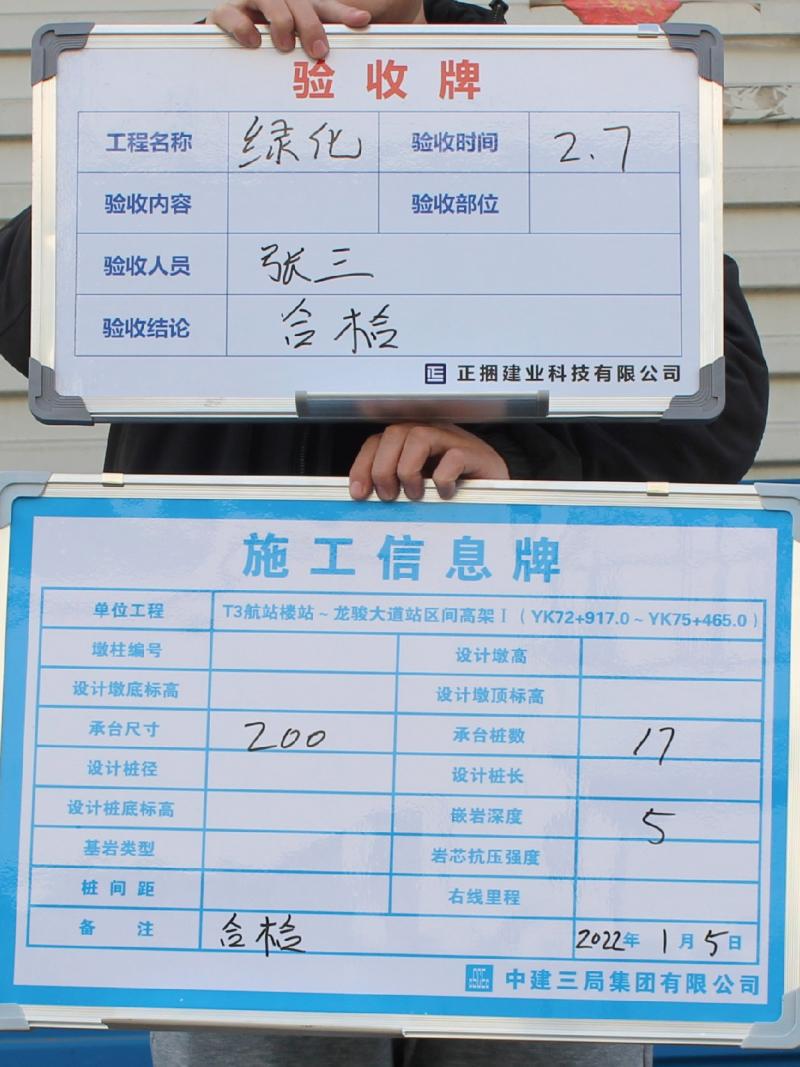 验收牌
工程名称 绿化 验收时间 2.7
验收内容 验收部位
验收人员 张三
验收结论 合检
正捆建业科技有限公司
施工信息牌
单位工程 T3航站楼站~龙骏大道站区间高架Ⅰ(YK72+917.0~YK75+465.0)
墩柱编号 设计墩高
设计墩底标高 设计墩顶标高
承台尺寸 200 承台桩数 17
设计桩径 设计桩长
设计桩底标高 嵌岩深度 5
基岩类型 岩芯抗压强度
桩间距 右线里程
备注 合检 2022年1月5日
中建三局集团有限公司